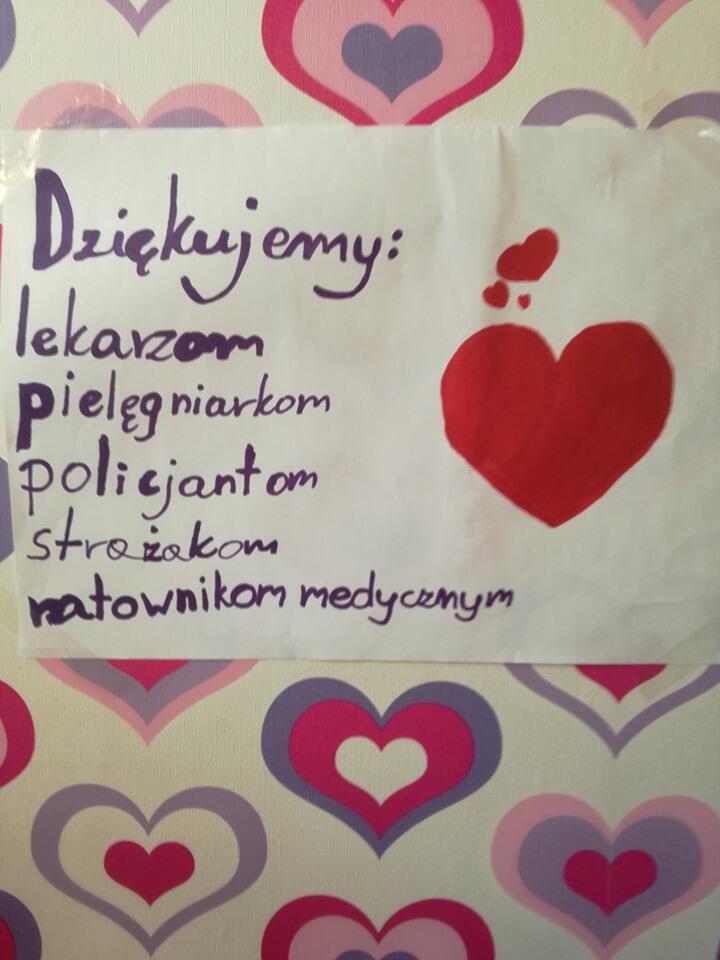 Dziękujemy:
lekarzom
pielęgniarkom
policjantom
strażakom
ratownikom medycznym